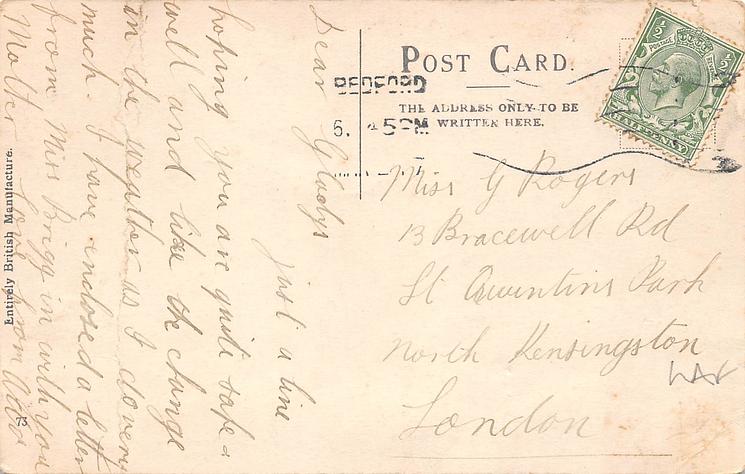 POST CARD.
THE ADDRESS ONLY TO BE
WRITTEN HERE.
BEDFORD
5. 45PM
POSTAGE
½ ½
HALFPENNY
Miss G Rogers
13 Bracewell Rd
St Quintins Park
North Kensingston
London
Dear Gladys
Just a line
hoping you are quite safe &
well and like the change
in the weather as I do very
much. I have enclosed a letter
from Miss Brigg in with you
Mother Love from
Entirely British Manufacture.
73